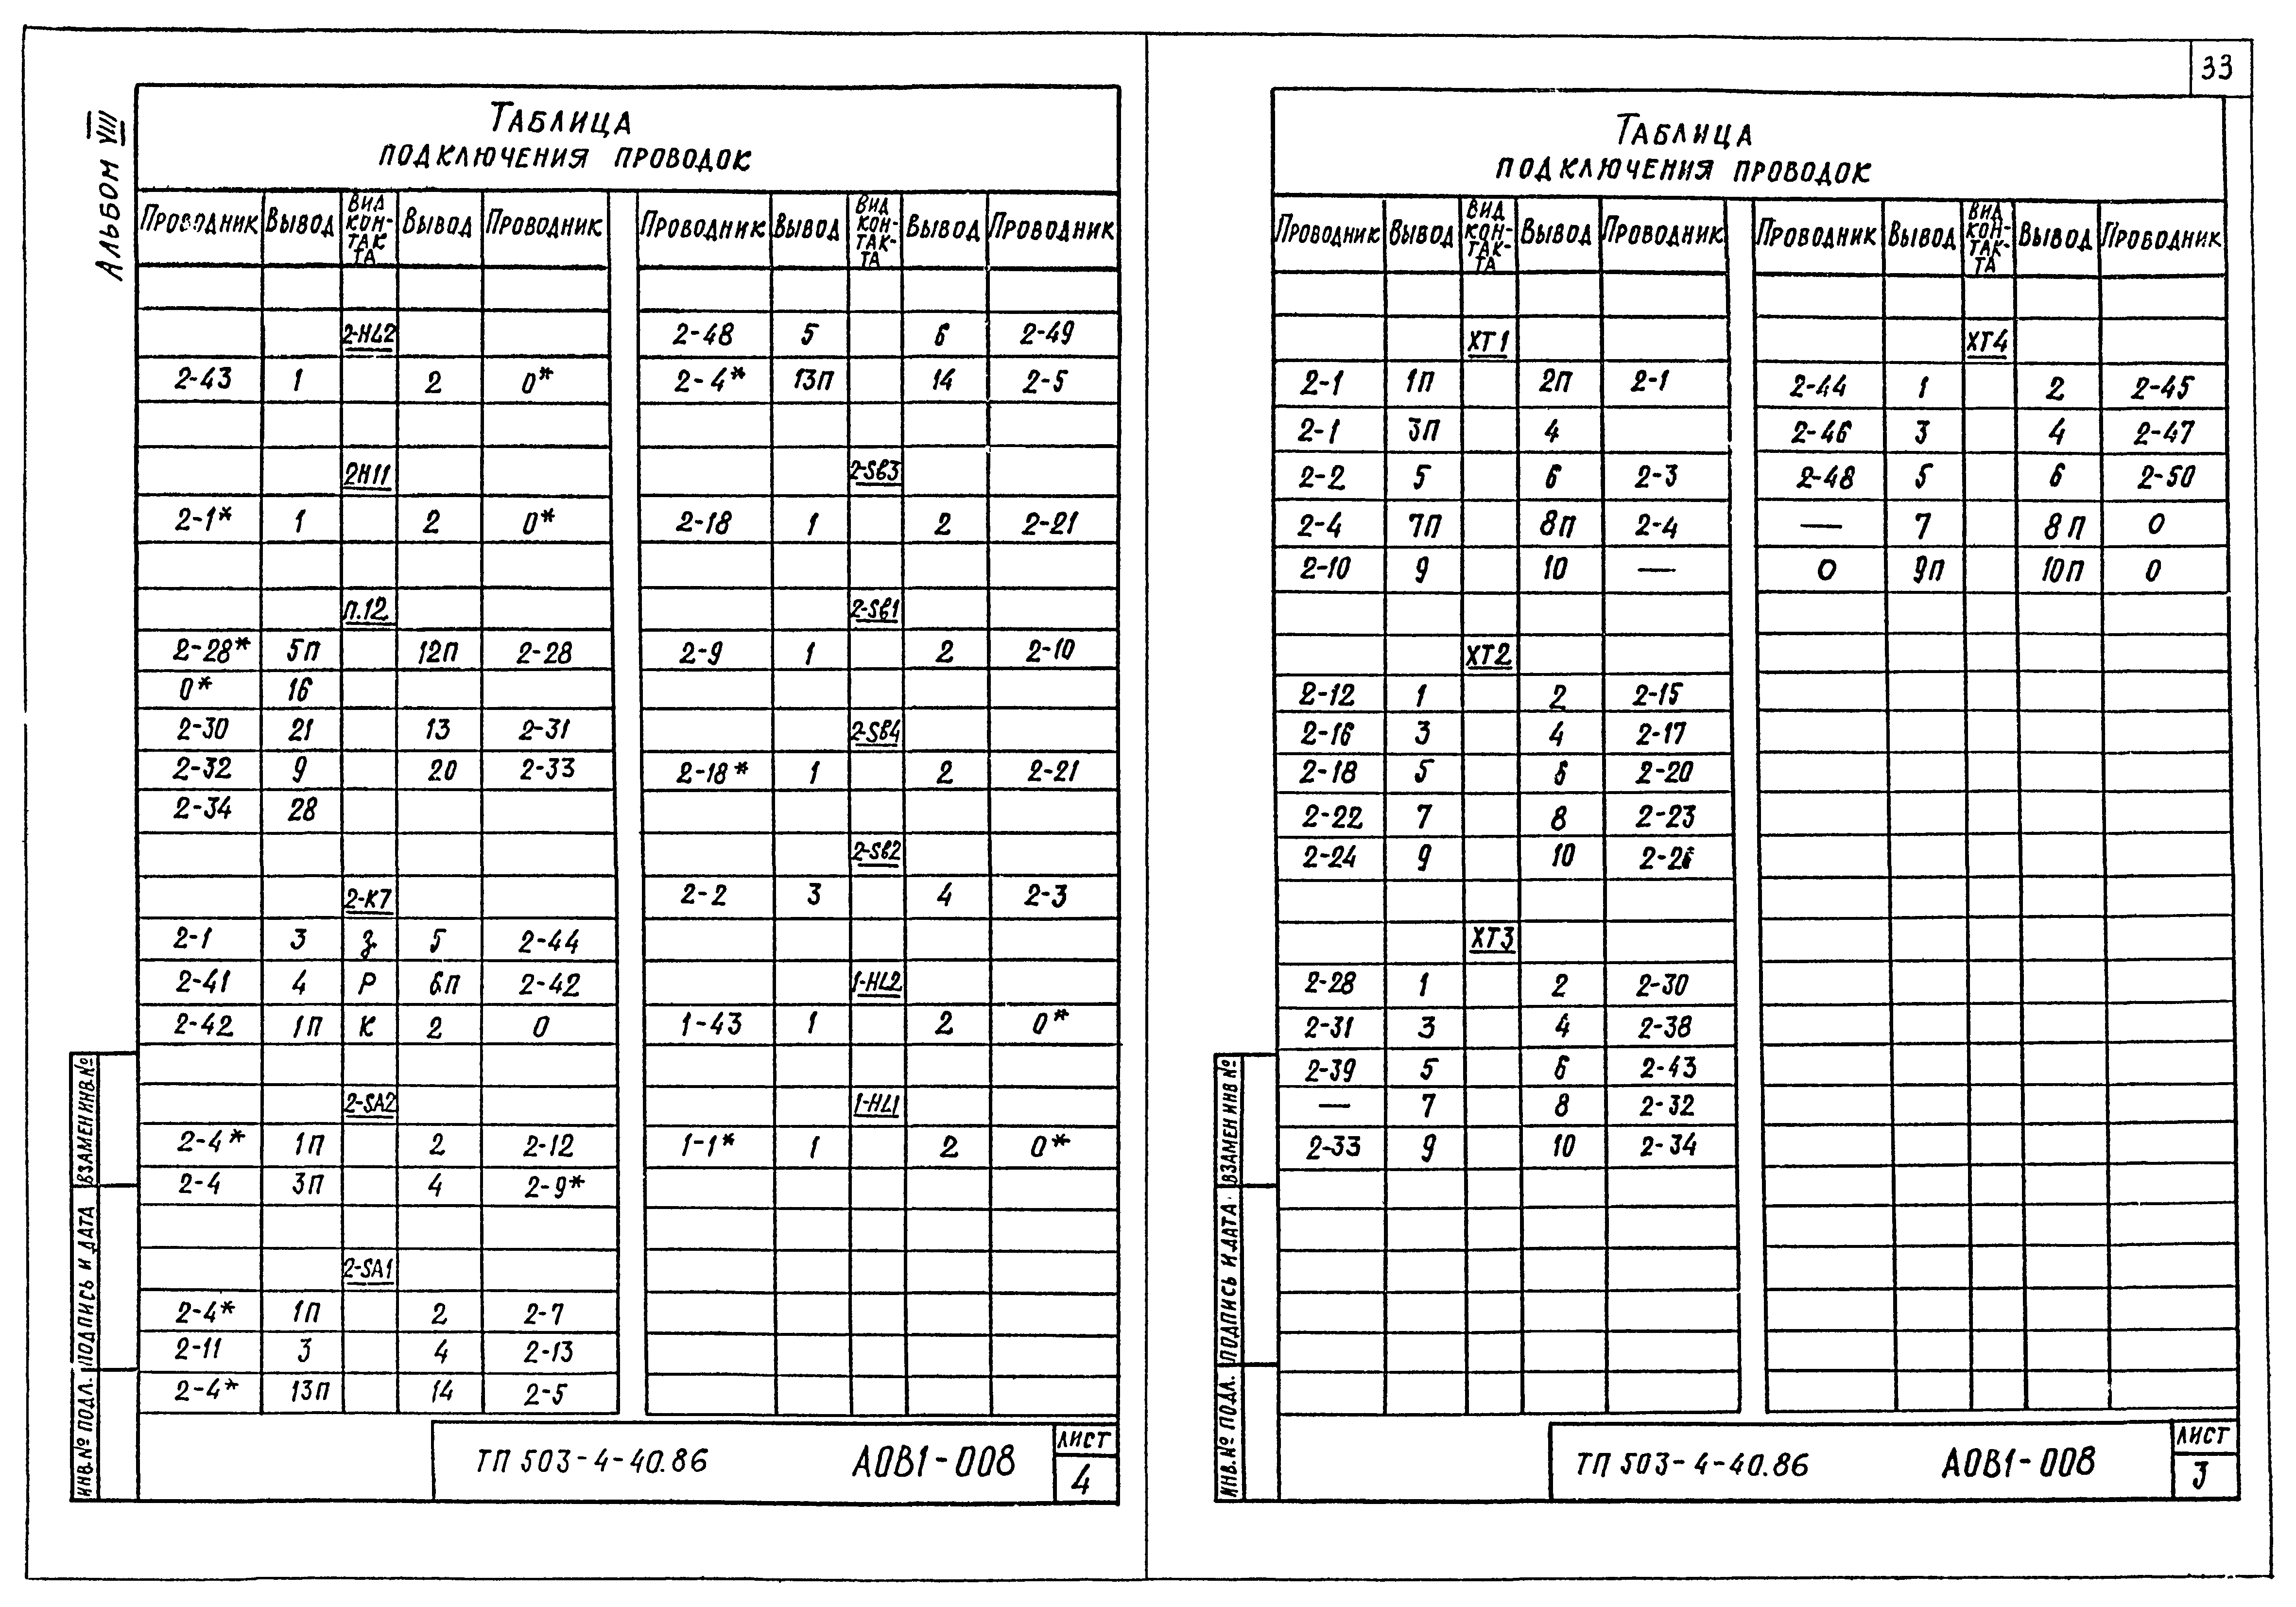 33
Альбом VIII
Таблица
подключения проводок
Проводник Вывод Вид кон- так та Вывод Проводник
2-HL2
2-43 1 2 0*
2H11
2-1* 1 2 0*
п.12
2-28* 5П 12П 2-28
0* 16
2-30 21 13 2-31
2-32 9 20 2-33
2-34 28
2-K7
2-1 3 З 5 2-44
2-41 4 Р 6П 2-42
2-42 1П К 2 0
2-SA2
2-4* 1П 2 2-12
2-4 3П 4 2-9*
2-SA1
2-4* 1П 2 2-7
2-11 3 4 2-13
2-4* 13П 14 2-5
Проводник Вывод Вид кон- так- та Вывод Проводник
2-48 5 6 2-49
2-4* 13П 14 2-5
2-Sв3
2-18 1 2 2-21
2-Sв1
2-9 1 2 2-10
2-Sв4
2-18* 1 2 2-21
2-Sв2
2-2 3 4 2-3
1-HL2
1-43 1 2 0*
1-HL1
1-1* 1 2 0*
Инв.№ подл. Подпись и дата Взамен инв.№
ТП 503-4-40.86 АОВ1-008
Лист
4
Таблица
подключения проводок
Проводник Вывод Вид кон- так- та Вывод Проводник
ХТ1
2-1 1П 2П 2-1
2-1 3П 4
2-2 5 6 2-3
2-4 7П 8П 2-4
2-10 9 10 —
ХТ2
2-12 1 2 2-15
2-16 3 4 2-17
2-18 5 6 2-20
2-22 7 8 2-23
2-24 9 10
ХТ3
2-28 1 2 2-30
2-31 3 4 2-38
2-39 5 6 2-43
— 7 8 2-32
2-33 9 10 2-34
Проводник Вывод Вид кон- так- та Вывод Проводник
ХТ4
2-44 1 2 2-45
2-46 3 4 2-47
2-48 5 6 2-50
— 7 8П 0
0 9П 10П 0
Инв.№ подл. Подпись и дата Взамен инв №
ТП 503-4-40.86 АОВ1-008
Лист
3